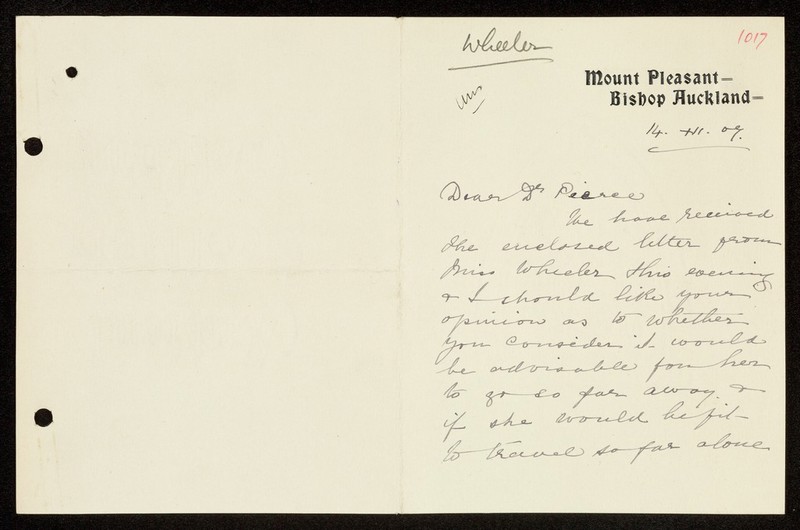 Wheeler
1017
Ans
Mount Pleasant—
Bishop Auckland—
14. XII. 09.
Dear Dr Pierce
We have received
the enclosed letter from
Miss Wheeler this evening
& I should like your
opinion as to whether
you consider it would
be advisable for her
to go so far away &
if she would be fit
to travel so far alone